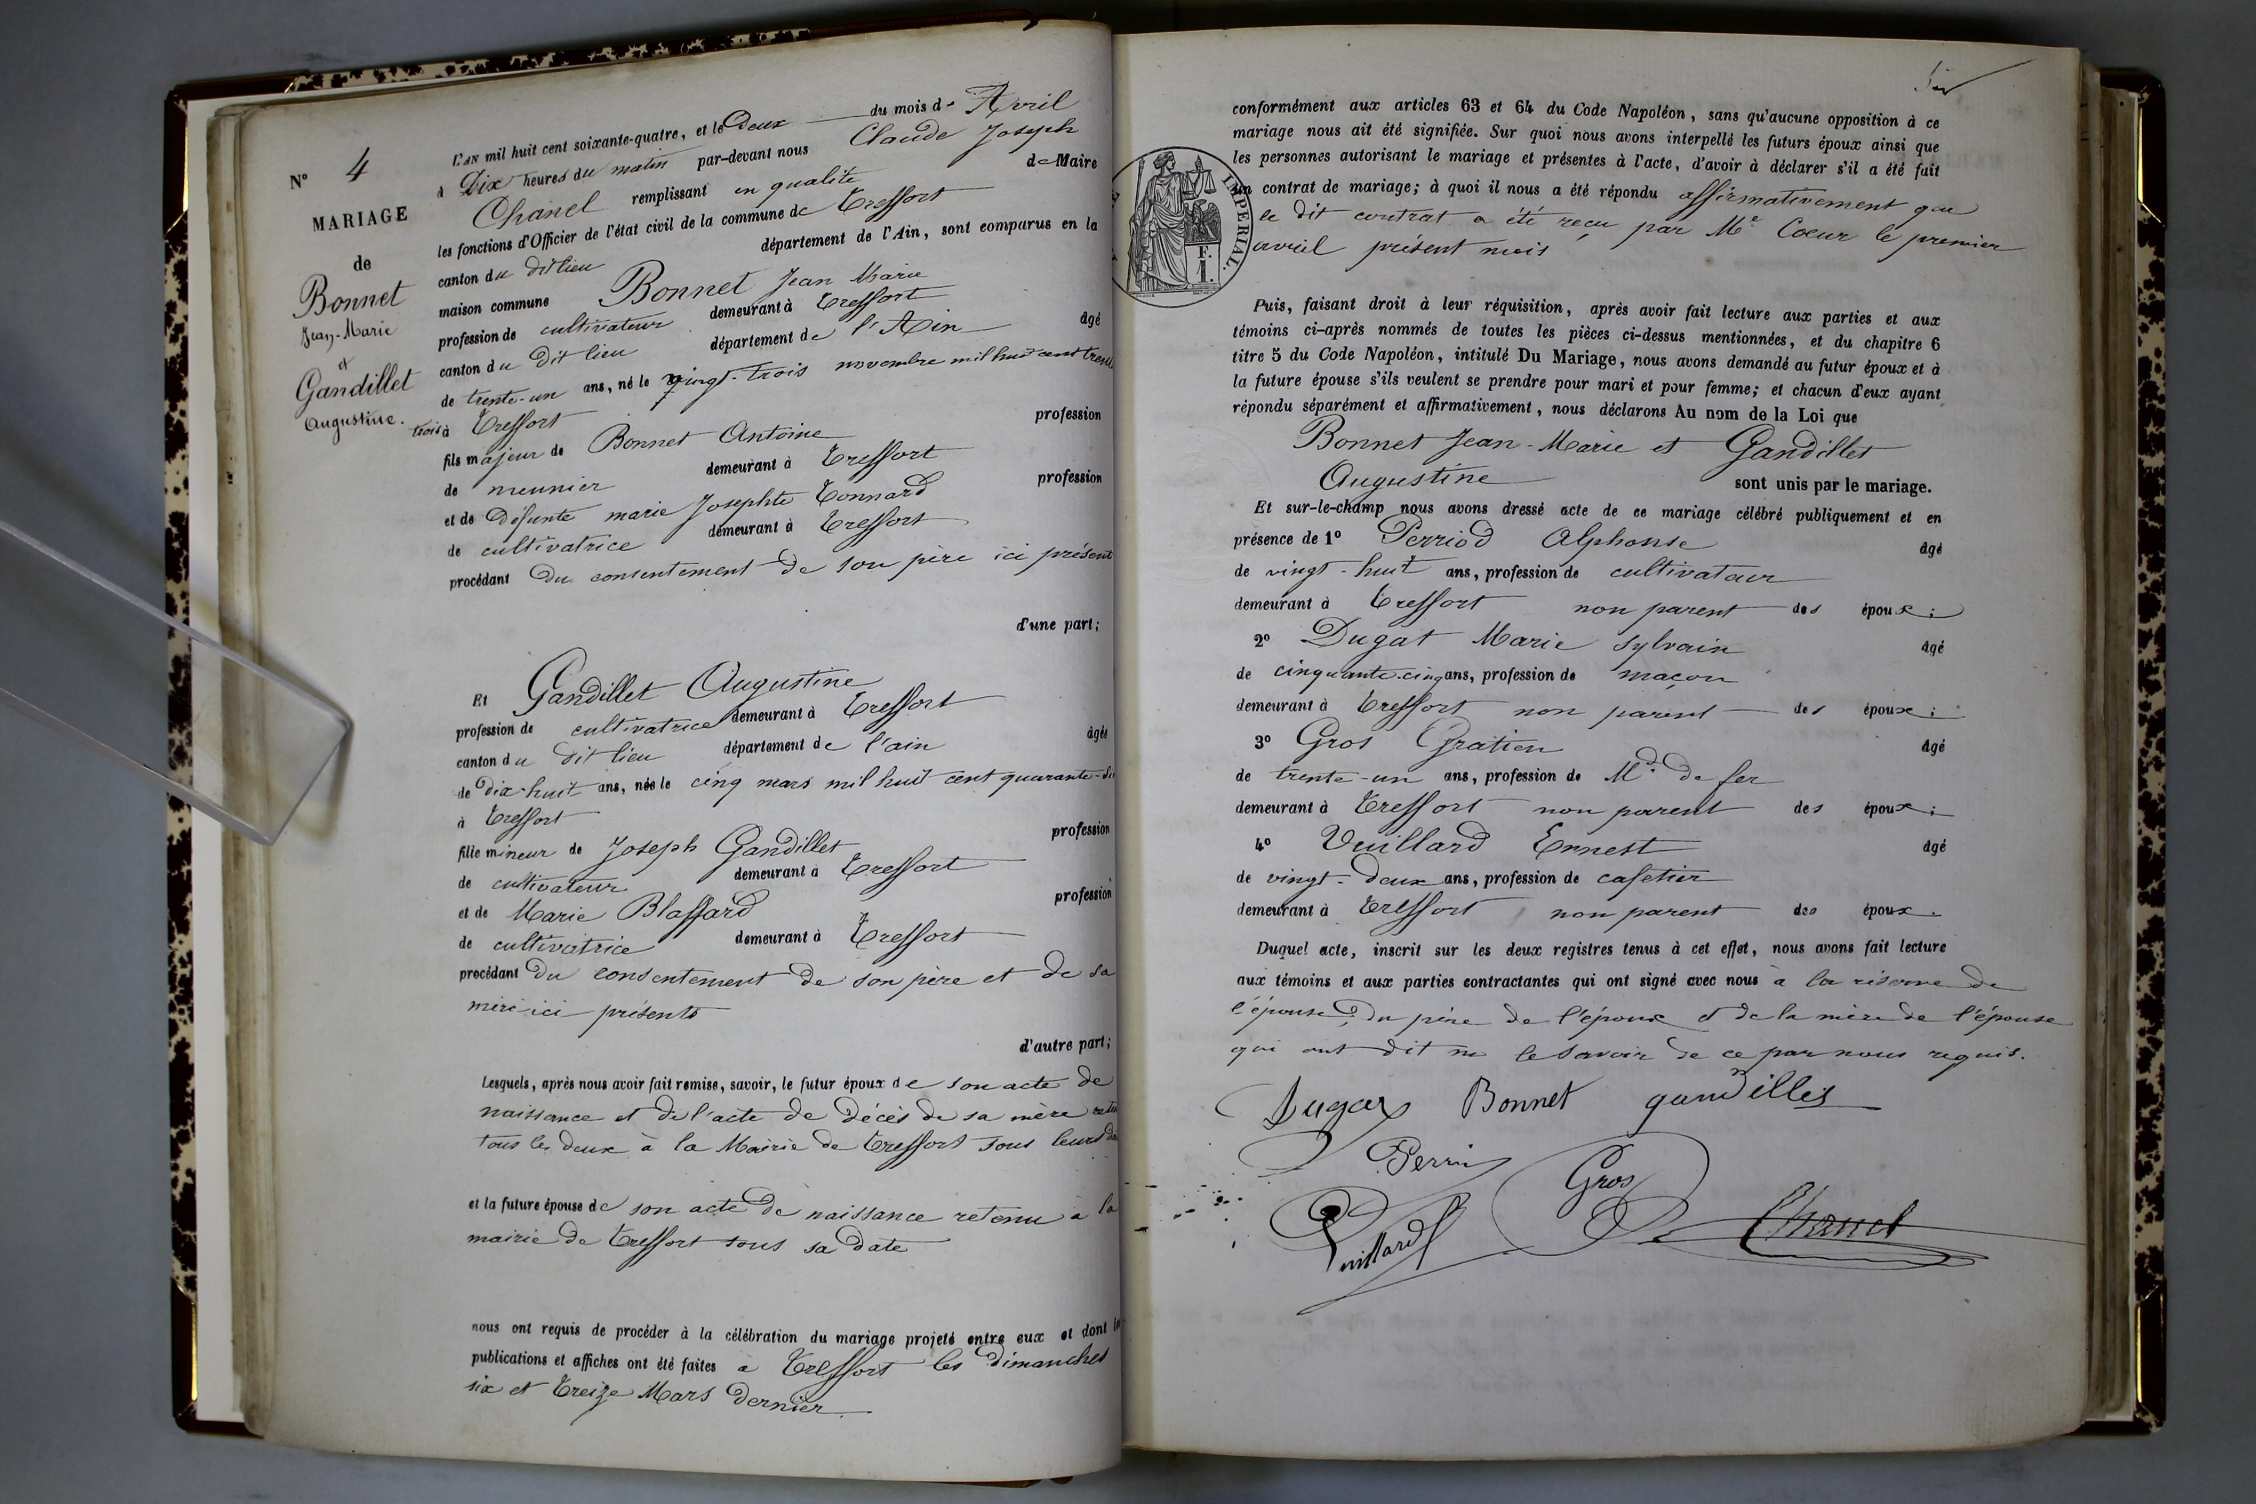 N° 4
MARIAGE
de
Bonnet
Jean-Marie
et
Gandillet
Augustine.
L'AN mil huit cent soixante-quatre, et le Deux du mois de Avril
à Dix heures du matin par-devant nous Claude Joseph
Chanel remplissant en qualité de Maire
les fonctions d'Officier de l'état civil de la commune de Treffort
canton du dit lieu département de l'Ain, sont comparus en la
maison commune Bonnet Jean Marie
profession de cultivateur demeurant à Treffort
canton du dit lieu département de l'Ain âgé
de trente-un ans, né le vingt-trois novembre mil huit cent trente
trois à Treffort
fils majeur de Bonnet Antoine profession
de meunier demeurant à Treffort
et de défunte marie Josephte Tonnard profession
de cultivatrice demeurant à Treffort
procédant du consentement de son père ici présent
d'une part;
Et Gandillet Augustine
profession de cultivatrice demeurant à Treffort
canton du dit lieu département de l'ain âgée
de dix-huit ans, née le cinq mars mil huit cent quarante-six
à Treffort
fille mineur de Joseph Gandillet profession
de cultivateur demeurant à Treffort
et de Marie Blaffard profession
de cultivatrice demeurant à Treffort
procédant du consentement de son père et de sa
mère ici présents
d'autre part;
Lesquels, après nous avoir fait remise, savoir, le futur époux de son acte de
naissance et de l'acte de décès de sa mère
tous les deux à la Mairie de Treffort sous leurs
et la future épouse de son acte de naissance retenu à la
mairie de Treffort sous sa date
nous ont requis de procéder à la célébration du mariage projeté entre eux et dont les
publications et affiches ont été faites à Treffort les dimanches
six et treize Mars dernier
conformément aux articles 63 et 64 du Code Napoléon, sans qu'aucune opposition à ce
mariage nous ait été signifiée. Sur quoi nous avons interpellé les futurs époux ainsi que
les personnes autorisant le mariage et présentes à l'acte, d'avoir à déclarer s'il a été fait
un contrat de mariage; à quoi il nous a été répondu affirmativement que
le dit contrat a été reçu par Me Coeur le premier
avril présent mois
IMPERIAL.
F.
1.
Puis, faisant droit à leur réquisition, après avoir fait lecture aux parties et aux
témoins ci-après nommés de toutes les pièces ci-dessus mentionnées, et du chapitre 6
titre 5 du Code Napoléon, intitulé Du Mariage, nous avons demandé au futur époux et à
la future épouse s'ils veulent se prendre pour mari et pour femme; et chacun d'eux ayant
répondu séparément et affirmativement, nous déclarons Au nom de la Loi que
Bonnet Jean-Marie et Gandillet
Augustine sont unis par le mariage.
Et sur-le-champ nous avons dressé acte de ce mariage célébré publiquement et en
présence de 1° Perriod Alphonse âgé
de vingt-huit ans, profession de cultivateur
demeurant à Treffort non parent des époux;
2° Dugat Marie Sylvain âgé
de cinquante-cinq ans, profession de maçon
demeurant à Treffort non parent des époux;
3° Gros Gratien âgé
de trente-un ans, profession de Md. de fer
demeurant à Treffort non parent des époux;
4° Vuillard Ernest âgé
de vingt-deux ans, profession de cafetier
demeurant à Treffort non parent des époux.
Duquel acte, inscrit sur les deux registres tenus à cet effet, nous avons fait lecture
aux témoins et aux parties contractantes qui ont signé avec nous à la réserve de
l'épouse, du père de l'époux et de la mère de l'épouse
qui ont dit ne le savoir de ce par nous requis.
Dugat Bonnet gandillet
Gros
Vuillard Chanel